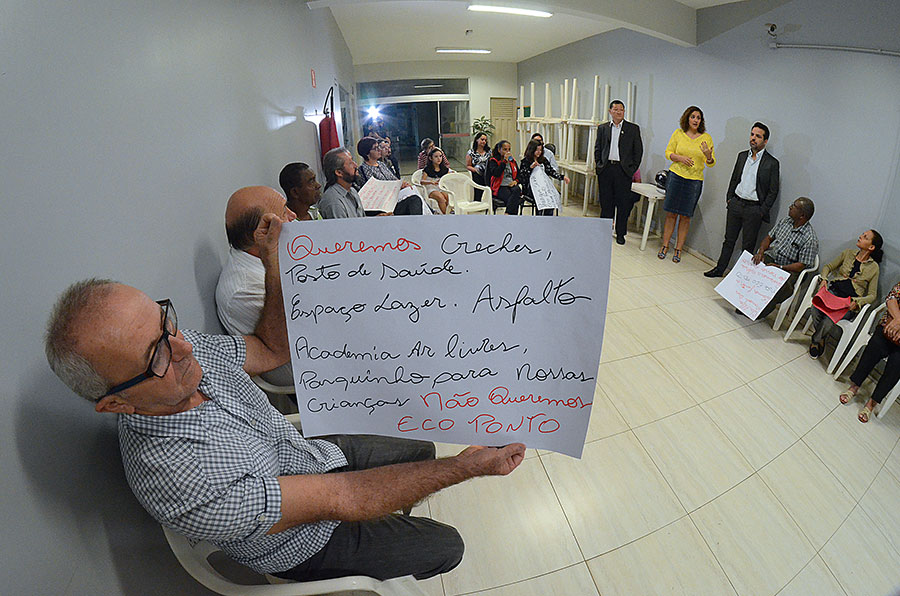 Queremos Creches,
Posto de Saúde.
Espaço Lazer. Asfalto
Academia Ar livres,
Parquinho para Nossas
Crianças Não Queremos
ECO PONTO